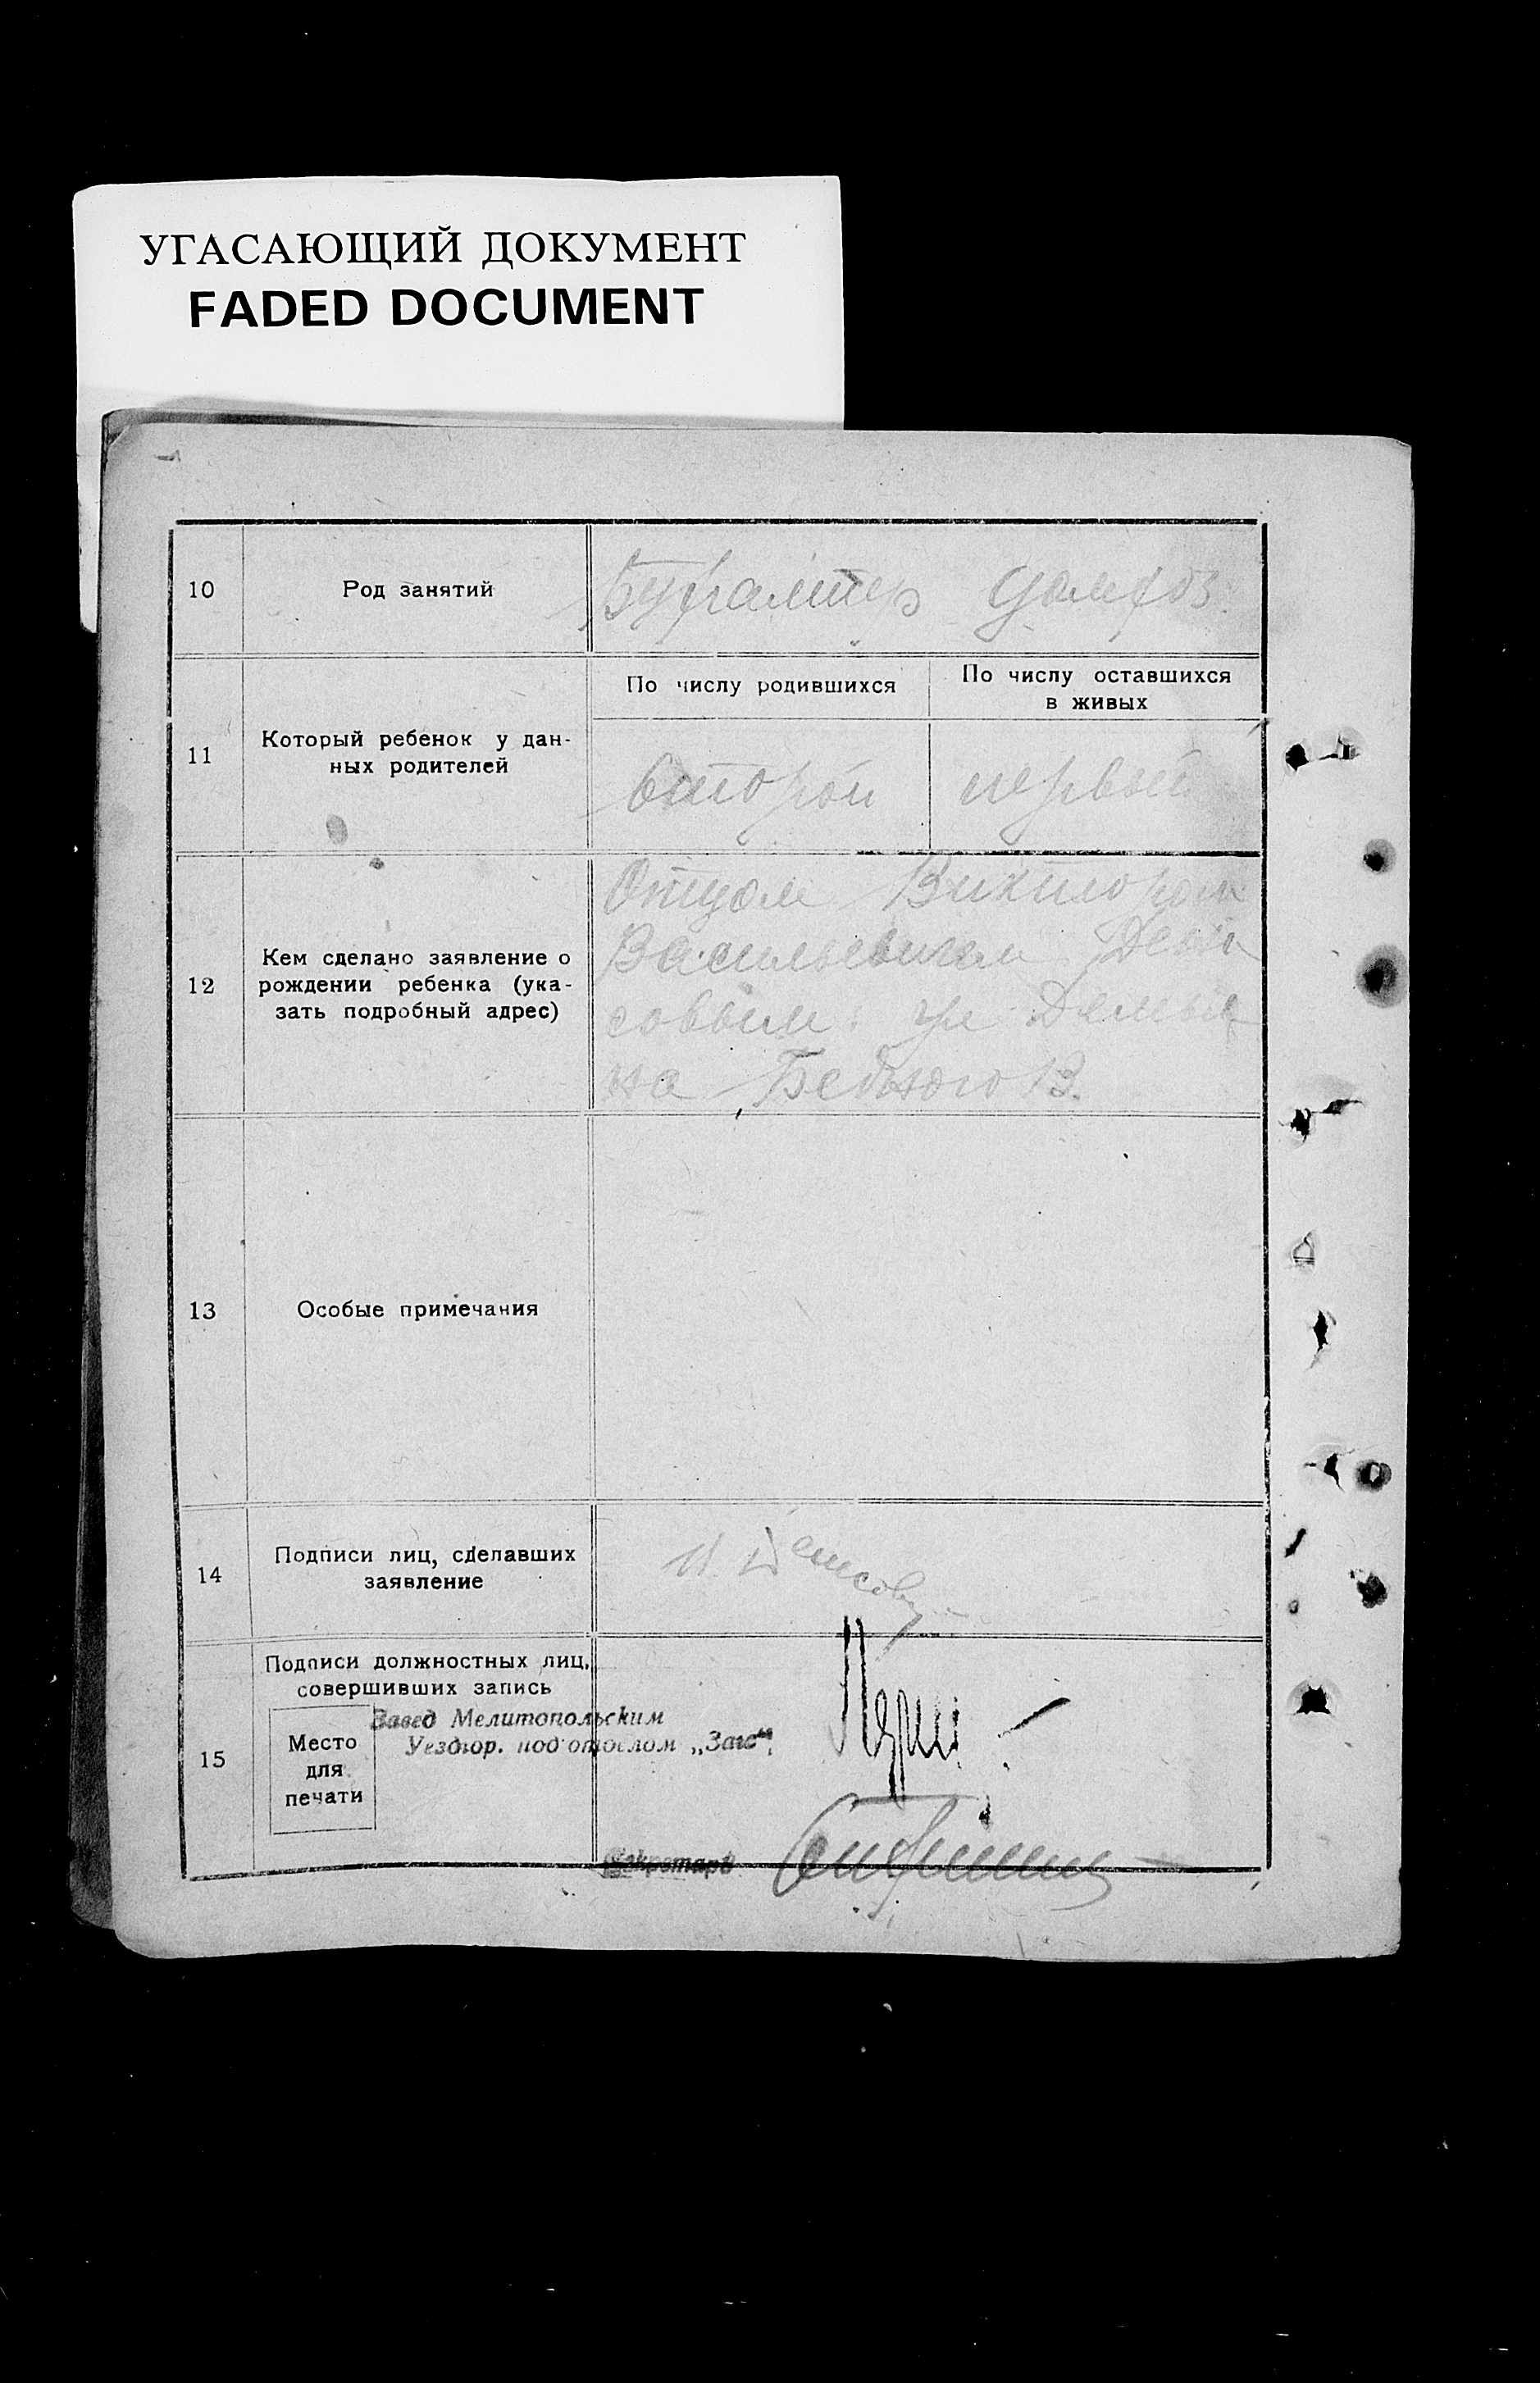 УГАСАЮЩИЙ ДОКУМЕНТ
FADED DOCUMENT
10
Род занятий
Бухгалтер
11
Который ребенок у дан-
ных родителей
По числу родившихся
По числу оставшихся
в живых
второй
первый
12
Кем сделано заявление о
рождении ребенка (ука-
зать подробный адрес)
Отцом Виктором
Васильевичем Дени
совым ул Демья
на Бедного 13.
13
Особые примечания
14
Подписи лиц, сделавших
заявление
Денисов
15
Подписи должностных лиц,
совершивших запись
Место
для
печати
Завед Мелитопольским
Уездгор. подотделом „Загс“
Секретарь